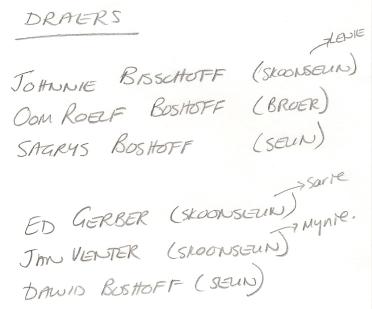 DRAERS
LENIE
JOHNNIE BISSCHOFF (SKOONSEUN)
OOM ROELF BOSHOFF (BROER)
SAGRYS BOSHOFF (SEUN)
Sarie
ED GERBER (SKOONSEUN)
Mynie.
JAN VENTER (SKOONSEUN)
DAWID BOSHOFF (SEUN)